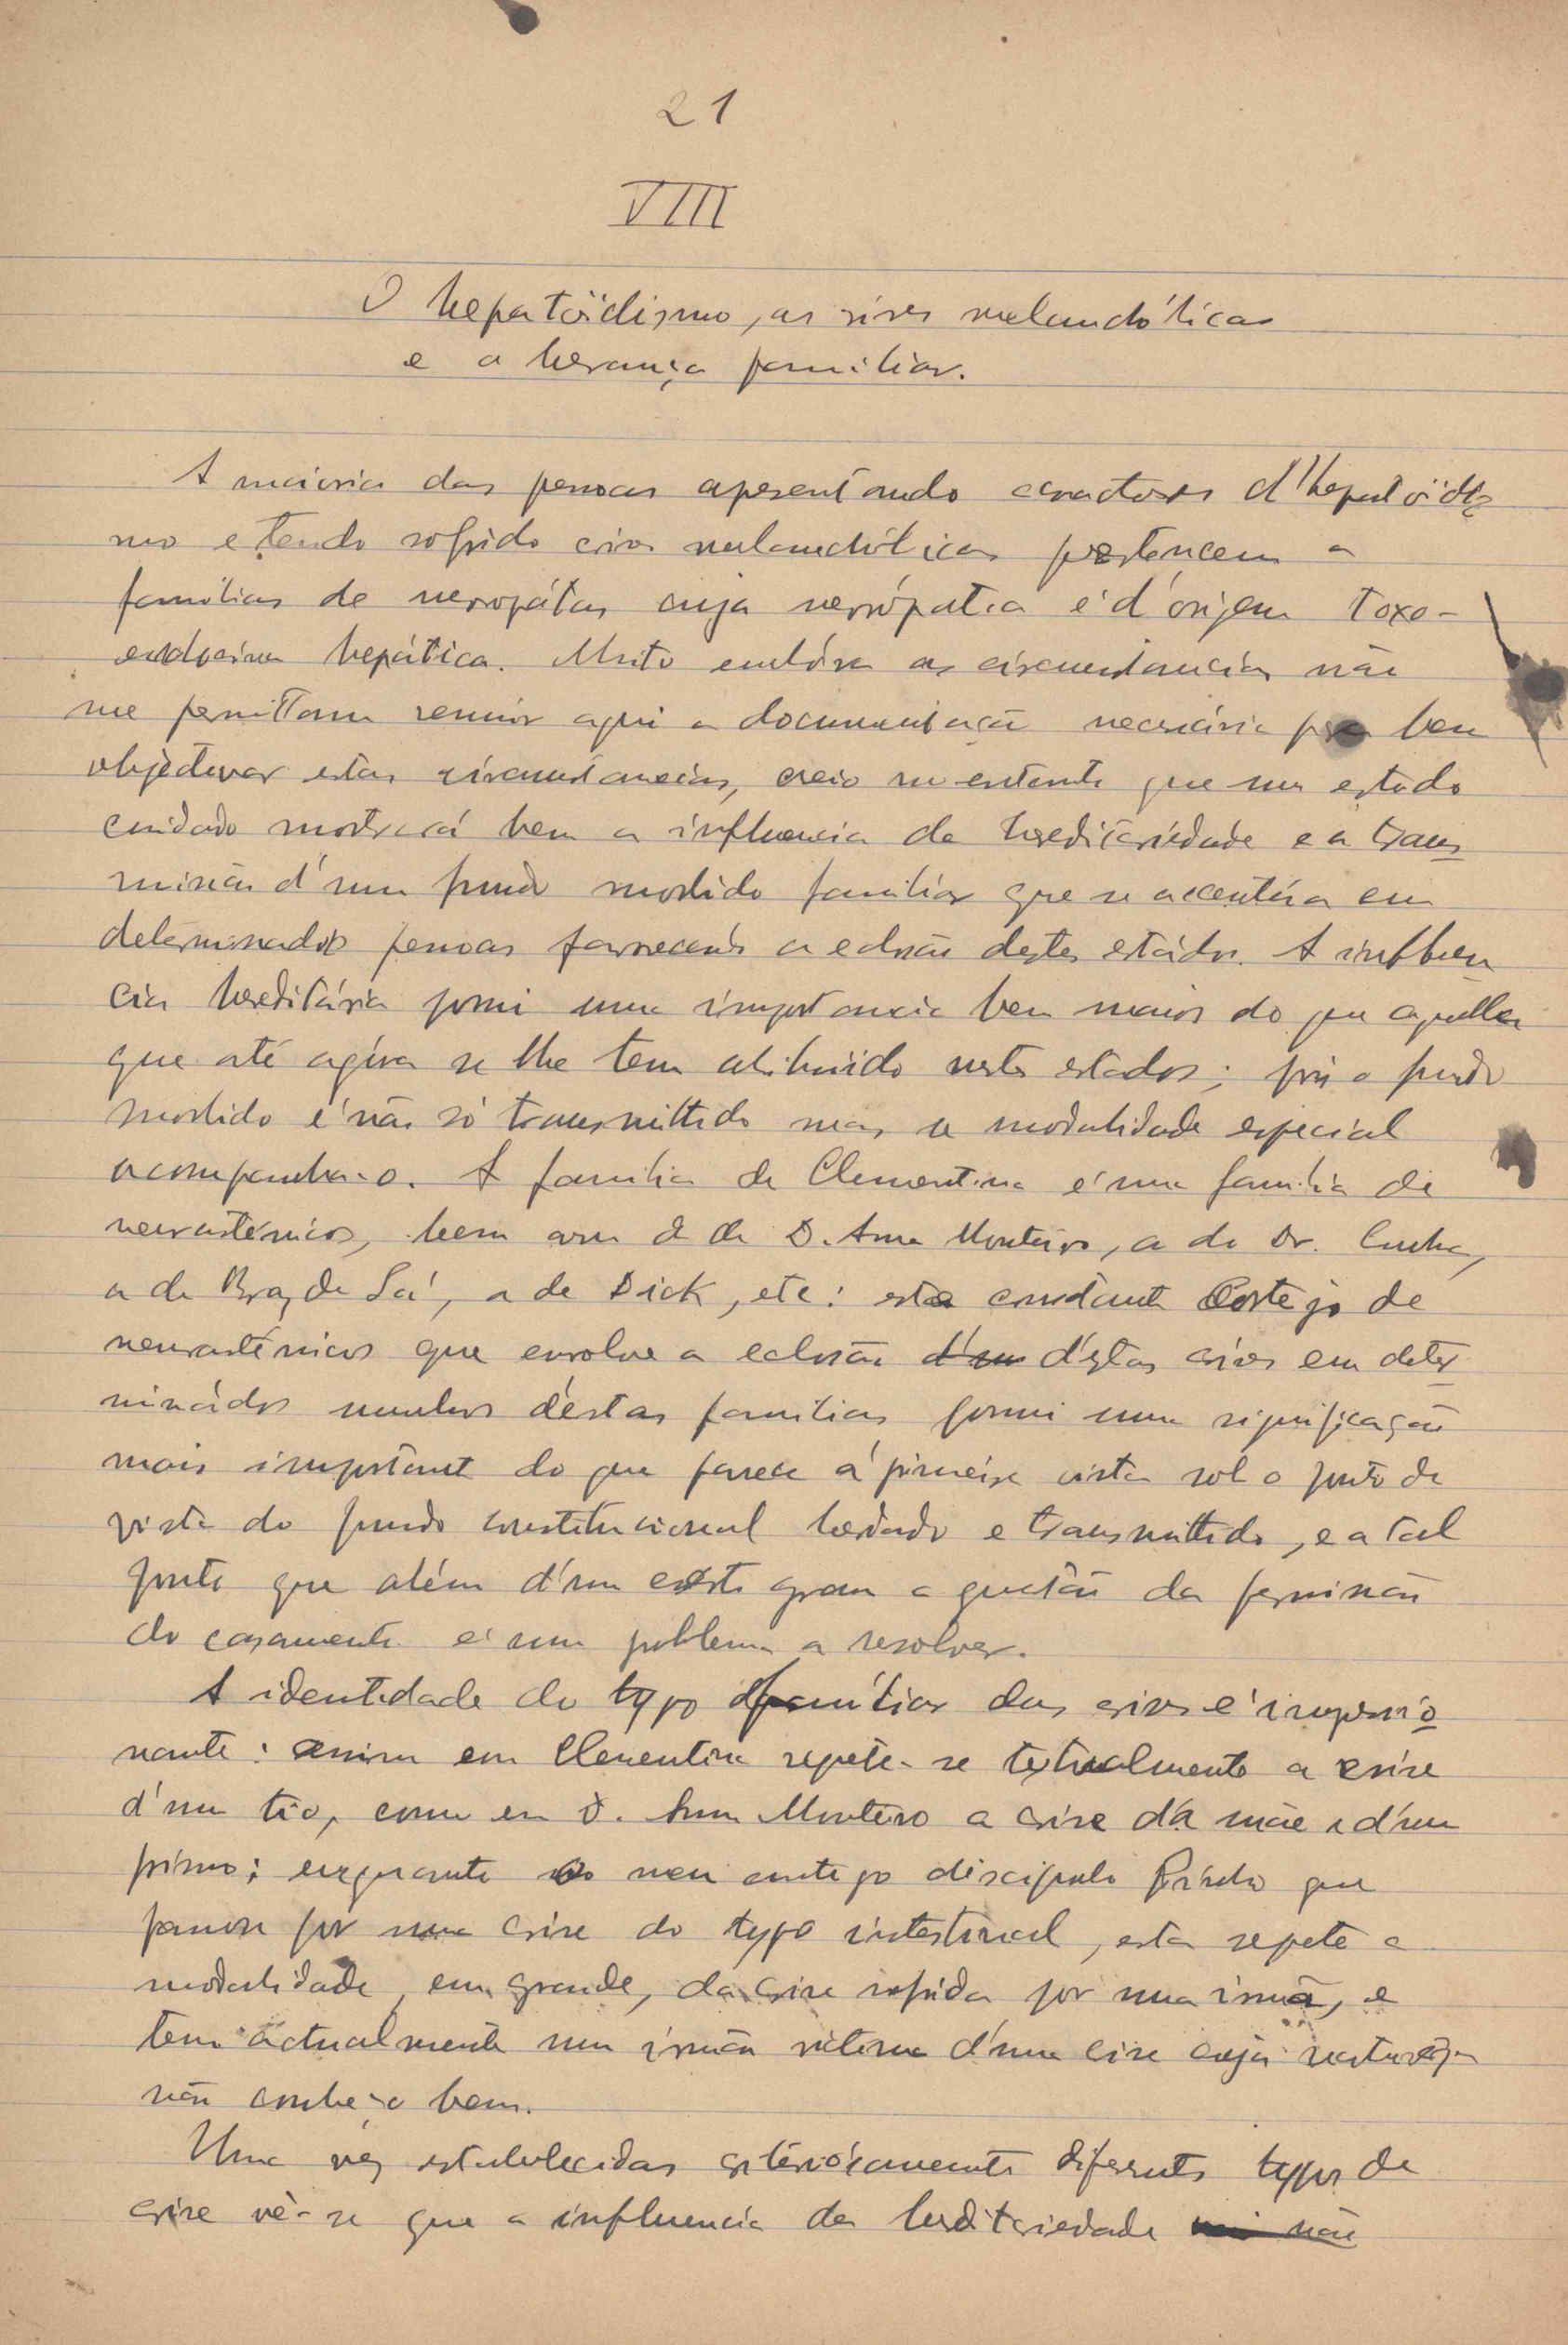 21
VIII
O hepatoïdismo, as crises melancólicas
e a herança familiar.
A maioria das pessoas apresentando caracteres d'hepatoidis
mo e tendo sofrido crises melancólicas pertencem a
familias de nevropátas cuja nevrópatia é d'origem toxo-
endocrina hepática. Muito embóra as circumstancias não
me permittam reunir aqui a documentação necessária para bem
objectivar estas circumstancias, creio no entanto que um estudo
cuidado mostrará bem a influencia da hereditariedade e a trans
missão d'um fundo morbido familiar que se accentúa em
determinados pessoas favorecendo a eclosão destes estádos. A influen
cia hereditária possui uma importancia bem maior do que aquella
que até agóra se lhe tem attribuido nestes estados; pois o fundo
morbido é não só transmittido mas a modalidade especial
acompanha-o. A familia de Clementina é uma familia de
neurasténicos, bem como a de D. Anna Monteiro, a do Dr. Cunha,
a de Braz de Sá, a de Dick, etc: este constante cortejo de
neurasténicos que envolve a eclosão d'um d'estas crises em deter
minádos membros déstas familias possui uma significação
mais importante do que parece á primeira vista sob o ponto de
vista do fundo constitucional herdado e transmittido, e a tal
ponto que além d'um certo grau a questão da permissão
do casamento é um problema a resolver.
A identidade do typo familiar das crises é impressio
nante: assim em Clementina repete-se textualmente a crise
d'um tio, como em D. Anna Monteiro a crise dá mãe e d'um
primo; emquanto no meu antigo discipulo que
passou por uma crise do typo intestinal, esta repete a
modalidade, em grande, da crise sofrida por uma irmã, e
tem actualmente um irmão victima d'uma crise cuja natureza
não conheço bem.
Uma vez estabelecidas criteriósamente diferentes typos de
crise vê-se que a influencia da hereditariedade não